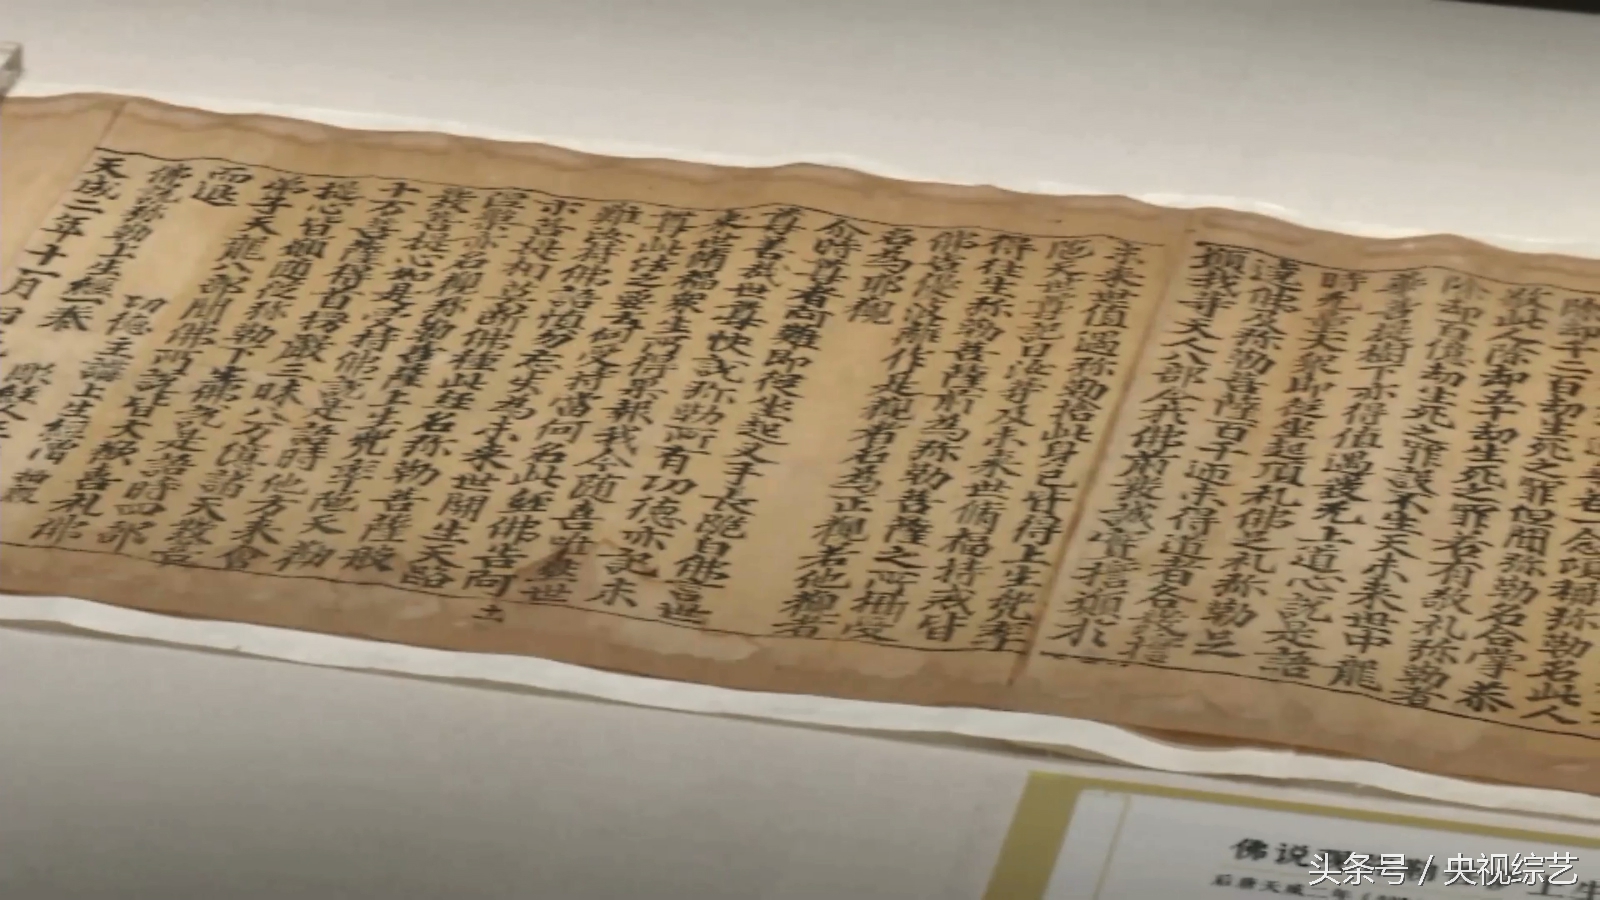 除却五十劫生死之罪若有敬礼弥勒者
除却百億劫生死之罪設不生天未來世中龍
華菩提樹下亦得值遇發无上道心說是語
時无量大衆即從坐起頂礼佛足礼弥勒足
遶佛及弥勒菩薩百千迊未得道者各發誓
願我等天人八部今於佛前發誠實誓願於
未來世值遇弥勒捨此身已皆得上生兜率
陁天世尊記曰汝等及未來世俻福持戒皆
得往生弥勒菩薩前為弥勒菩薩之所攝受
佛告優波離作是觀者名為正觀若他觀者
名為耶觀
尒時尊者阿難即從坐起叉手長跪白佛言世
尊善哉世尊快說弥勒所有功德亦記未
來世俻福衆生所得果報我今随喜唯然世
尊此法之要云何受持當何名此經佛告阿
難汝持佛語慎勿忘失為未來世開生天路
示菩提相莫斷佛種此經名弥勒菩薩般
涅槃亦名觀弥勒菩薩上生兜率陁天勸
發菩提心如是受持佛說是語時他方來會
十万菩薩得首楞嚴三昧八万億諸天發
菩提心皆願随從弥勒下生佛說是語時四部
弟子天龍八部聞佛所說皆大歡喜礼佛
而退
佛說弥勒上生經一卷
功德主講上生經僧
天成二年十一月
彫經人王
佛说
上生
后唐天成二年
头条号 / 央视综艺